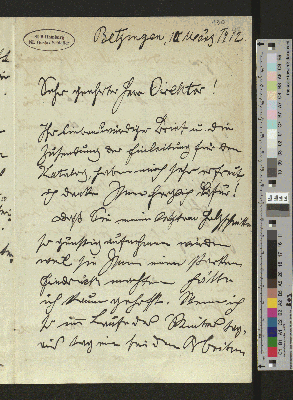 180
Betzingen, 11 März 1912.
Sehr geehrter Herr Direktor!
Ihr liebenswürdiger Brief u. die
Zusendung der Einleitung für den
Katalog haben mich sehr erfreut
ich danke Ihnen herzlich dafür!
Daß Sie meine letzten Holzschnitte
so günstig aufnehmen würden
weil sie Ihnen einen starken
Eindruck machten hätte
ich kaum gehofft. Wenn ich
so im Laufe des Winters tag
aus tag ein bei den Arbeiten